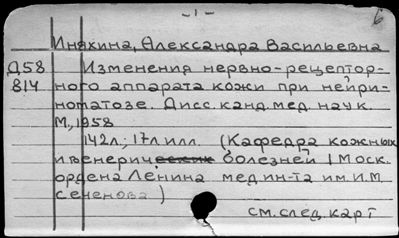 - 1 -
6
Иняхина, Александра Васильевна
Д58 Изменения нервно-рецептор-
814 ного аппарата кожи при нейри-
номатозе. Дисс. канд. мед. наук.
М., 1958
142л.; 17л илл. (Кафедра кожных
и венерических болезней I Моск.
ордена Ленина мед ин-та им. И.М.
Сеченова)
см. след. карт